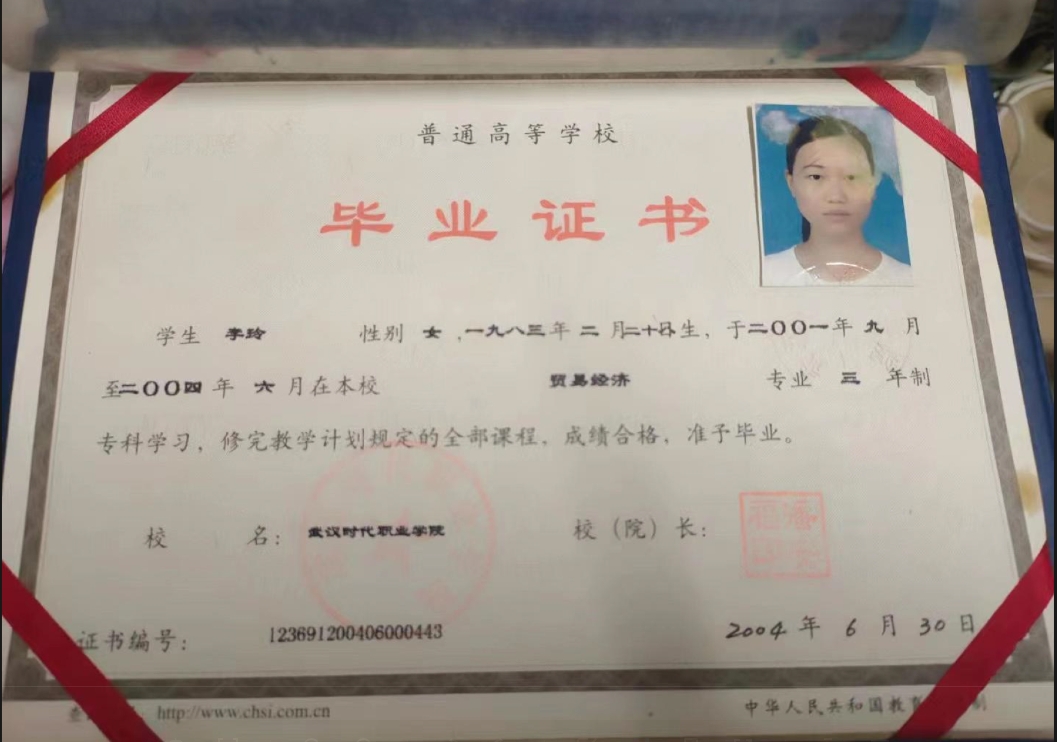 普通高等学校
毕业证书
学生 李玲 性别 女，一九八三年 二 月二十日生，于二〇〇一年 九 月
至二〇〇四年 六 月在本校 贸易经济 专业 三 年制
专科学习，修完教学计划规定的全部课程，成绩合格，准予毕业。
校 名： 武汉时代职业学院 校（院）长：
证书编号： 123691200406000443 2004 年 6 月 30 日
http://www.chsi.com.cn 中华人民共和国教育 制